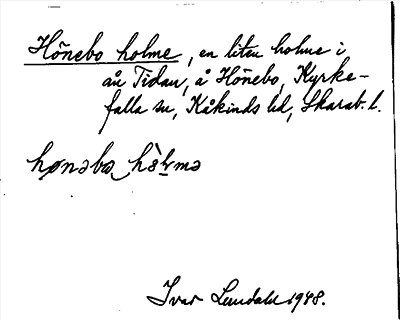 Hönebo holme, en liten holme i
ån Tidan, å Hönebo, Kyrke-
falla sn, Kåkinds hd, Skarab. l.
hønəbω hòlmə
Ivar Lundahl 1948.